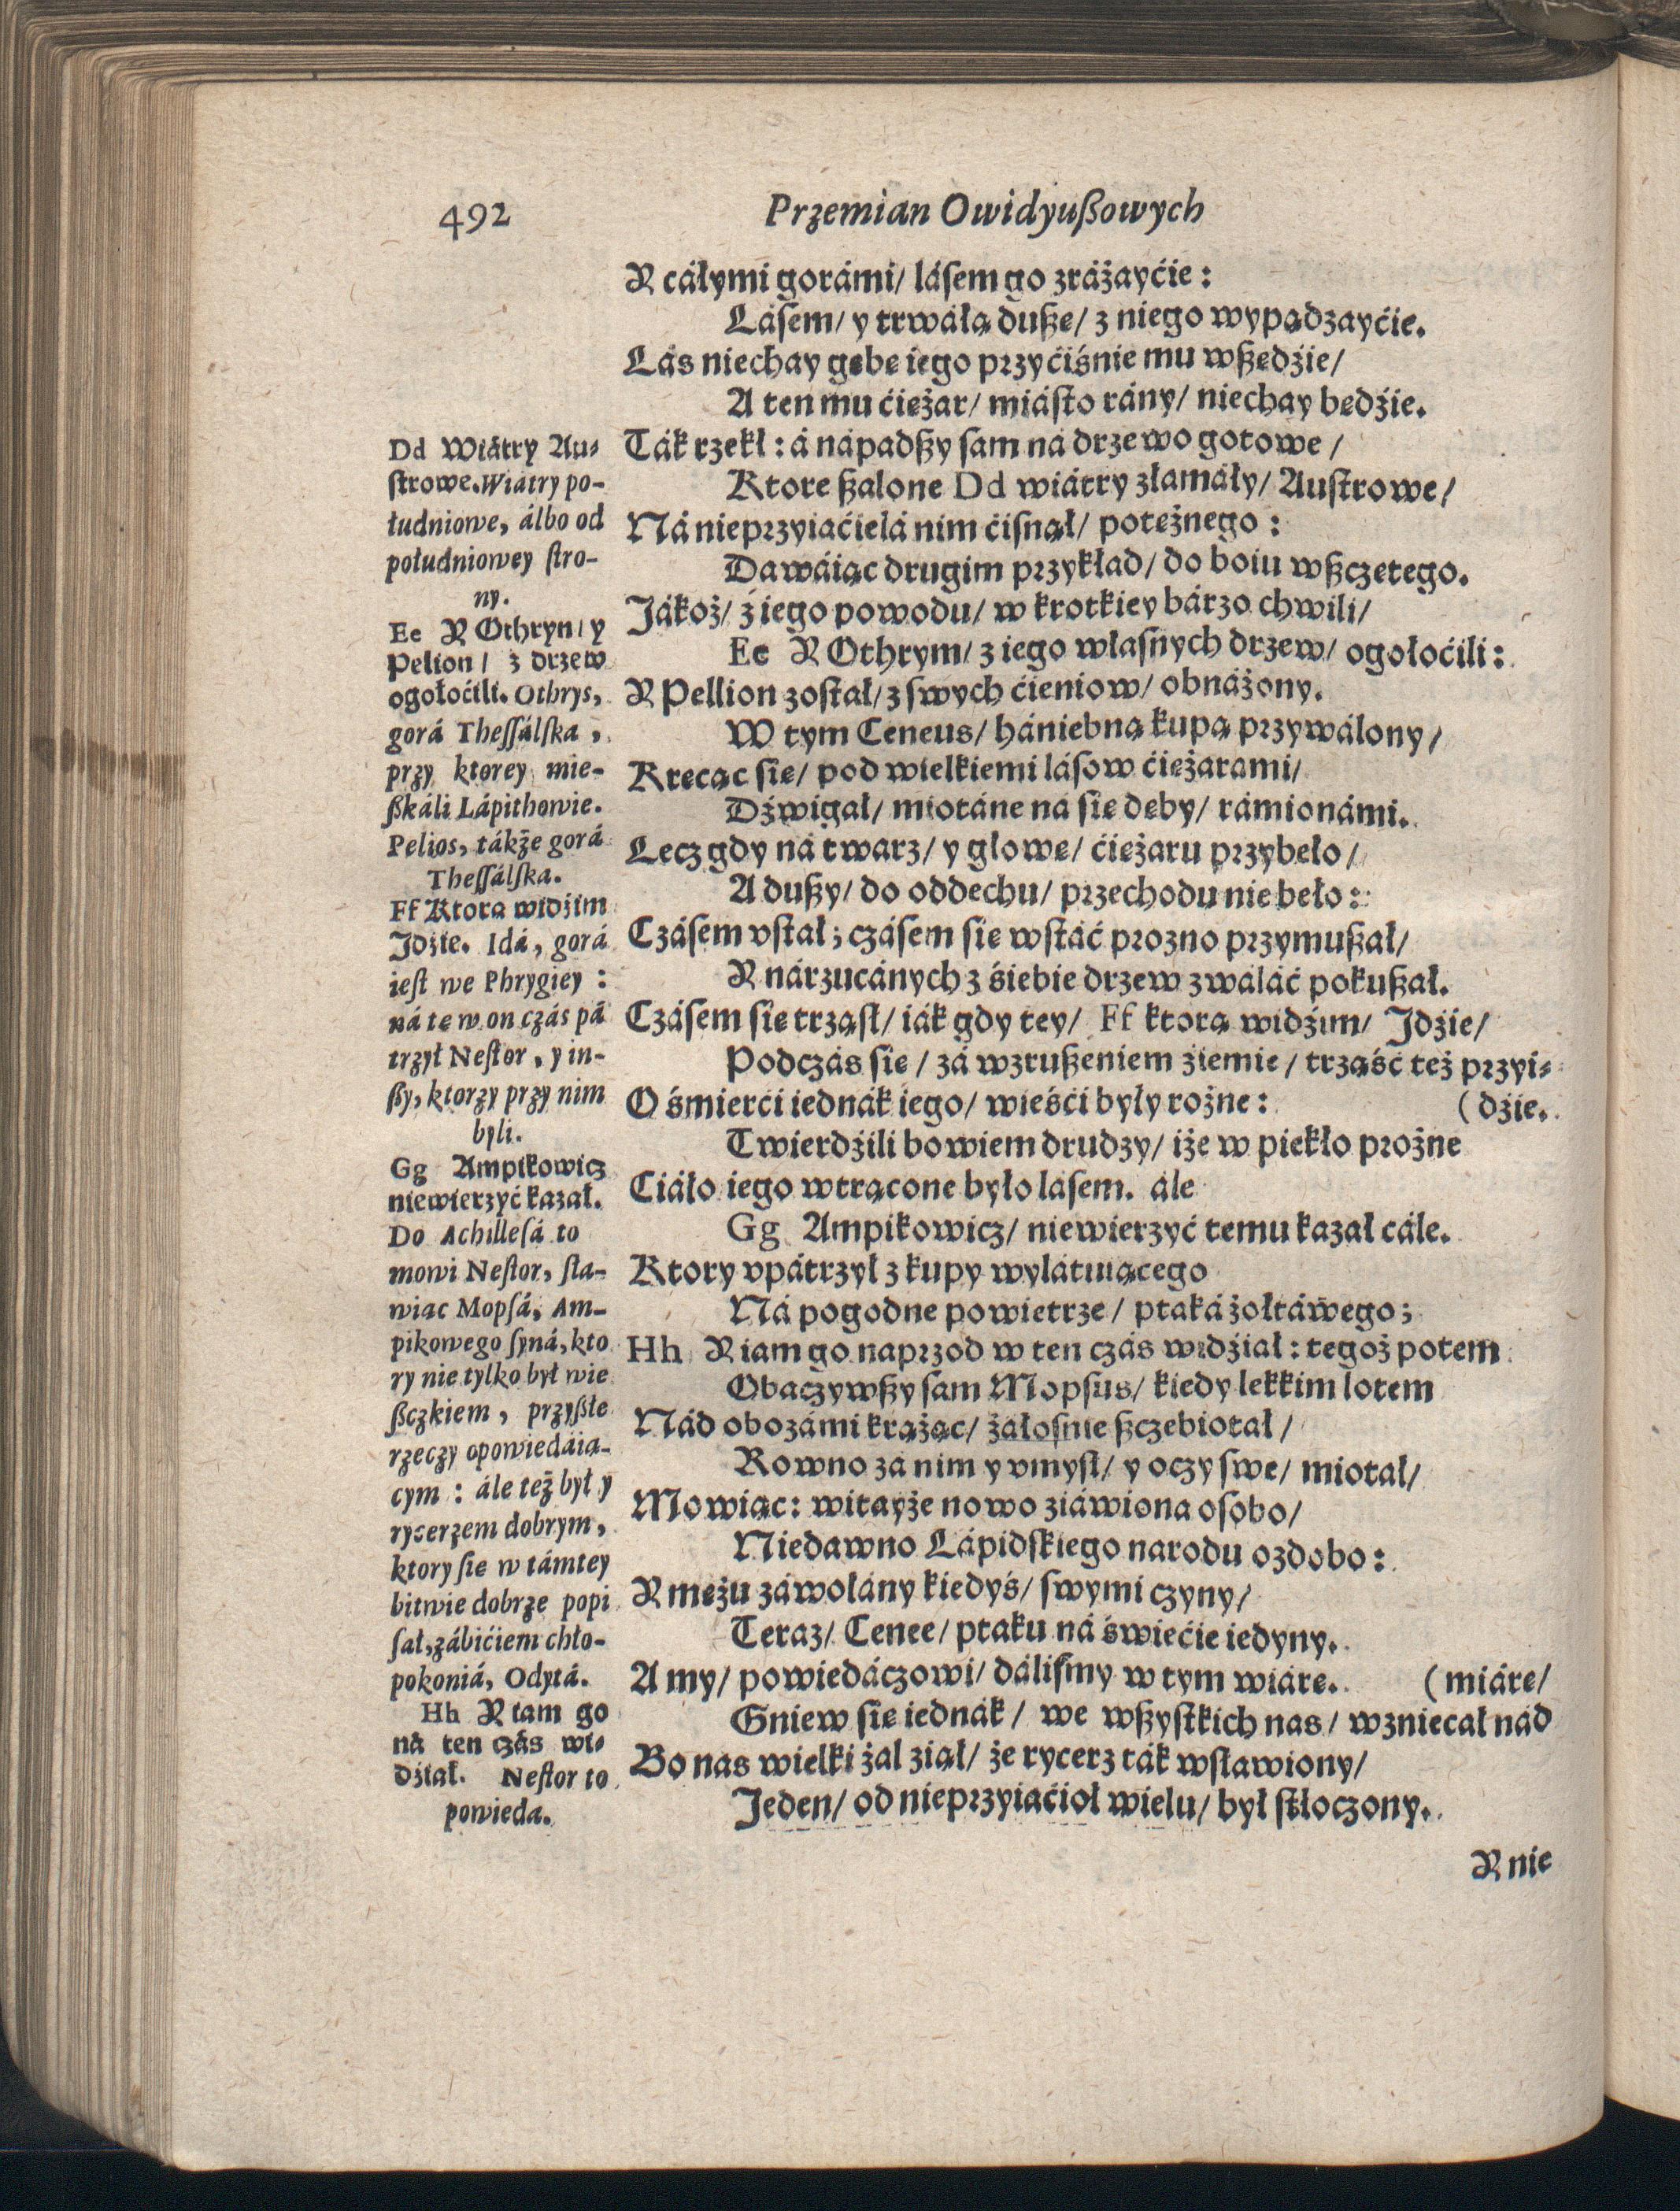 492
Przemian Owidyußowych
Y cáłymi gorámi/ láſem go zráżayćie:
Láſem/ y trwáłą duße/ z niego wypądzayćie.
Lás niechay gębę iego przyćiśnie mu wßedżie/
A ten mu ćieżar/ miáſto rány/ niechay będżie.
Ták rzekł: á nápadßy ſam ná drzewo gotowe/
Ktore ßalone Dd wiátry złamáły/ Auſtrowe/
Ná nieprzyiaćielá nim ćiſnął/ poteżnego:
Dawáiąc drugim przykład/ do boiu wßczetego.
Jákoż/ ź iego powodu/ w krotkiey bárzo chwili/
Ee Y Othrym/ z iego właſnych drzew/ ogołoćili:
Y Pellion zoſtał/ z ſwych ćieniow/ obnáżony.
W tym Ceneus/ hániebną kupą przywálony/
Krecąc ſie/ pod wielkiemi láſow ćieżarami/
Dźwigał/ miotáne ná ſie deby/ rámionámi.
Lecz gdy ná twarz/ y głowe/ ćieżaru przybeło/
A dußy/ do oddechu/ przechodu nie beło:
Czáſem vſtał; czáſem ſie wſtáć prozno przymußał/
Y nárzucánych z śiebie drzew zwaláć pokußał.
Czáſem ſie trząſł/ iák gdy tey/ Ff ktorą widźim/ Jdżie/
Podczás ſie/ zá wzrußeniem żiemie/ trząść też przyi-
O śmierći iednák iego/ wieśći były rożne: (dżie.
Twierdżili bowiem drudzy/ iże w piekło prożne
Ciáło iego wtrącone było láſem. ále
Gg Ampikowicz/ niewierzyć temu kazał cále.
Ktory vpátrzył z kupy wylátuiącego
Ná pogodne powietrze/ ptaká żołtáwego;
Hh Y iam go naprzod w ten czás widźiał: tegoż potem
Obaczywßy ſam Mopſus/ kiedy lekkim lotem
Nád obozámi krążąc/ żałoſnie ßczebiotał/
Rowno zá nim y vmyſł/ y oczy ſwe/ miotał/
Mowiąc: witayże nowo ziáwiona oſobo/
Niedawno Lápidſkiego narodu ozdobo:
Y mężu záwołány kiedyś/ ſwymi czyny/
Teraz/ Cenee/ ptaku ná świećie iedyny.
A my/ powiedáczowi/ dáliſmy w tym wiáre. (miáre/
Gniew ſie iednák/ we wßyſtkich nas/ wzniecał nád
Bo nas wielki żal ziął/ że rycerz ták wſławiony/
Jeden/ od nieprzyiaćioł wielu/ był ſtłoczony.
Y nie
Dd Wiátry Au-
ſtrowe. Wiátry po-
łudniowe, álbo od
południowey ſtro-
ny.
Ee Y Othryn/ y
Pelion/ z drzew
ogołoćili. Othrys,
gorá Theſſálſka,
przy ktorey mie-
ßkáli Lápithowie.
Pelios, tákże gorá
Theſſálſka.
Ff Ktorą widźim
Jdżie. Idá, gorá
ieſt we Phrygiey:
ná te w on czás pá
trzył Neſtor, y in-
ßy, ktorzy przy nim
byli.
Gg Ampikowicz
niewierzyć kazał.
Do Achilleſá to
mowi Neſtor, ſła-
wiac Mopſá, Am-
pikowego ſyná, kto
ry nie tylko był wie
ßczkiem, przyßłe
rzeczy opowiedáią-
cym: ále też był y
rycerzem dobrym,
ktory ſie w támtey
bitwie dobrze popi
ſał, zábićiem chło-
pokoniá, Odytá.
Hh Y tam go
ná ten czás wi-
dźiał. Neſtor to
powieda.